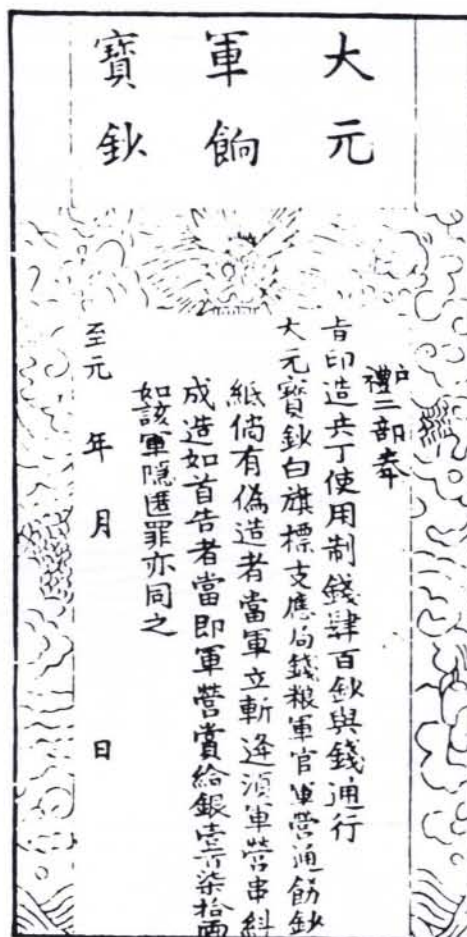 大元
軍餉
寶鈔
戶禮二部奉
旨印造兵丁使用制錢肆百鈔與錢通行
大元寶鈔白旗標支應局錢粮軍官軍營通飭鈔
紙倘有偽造者當軍立斬逄湏軍營串糾
成造如首告者當即軍營賞給銀壹百柒拾兩
如該軍隱匿罪亦同之
至元 年 月 日